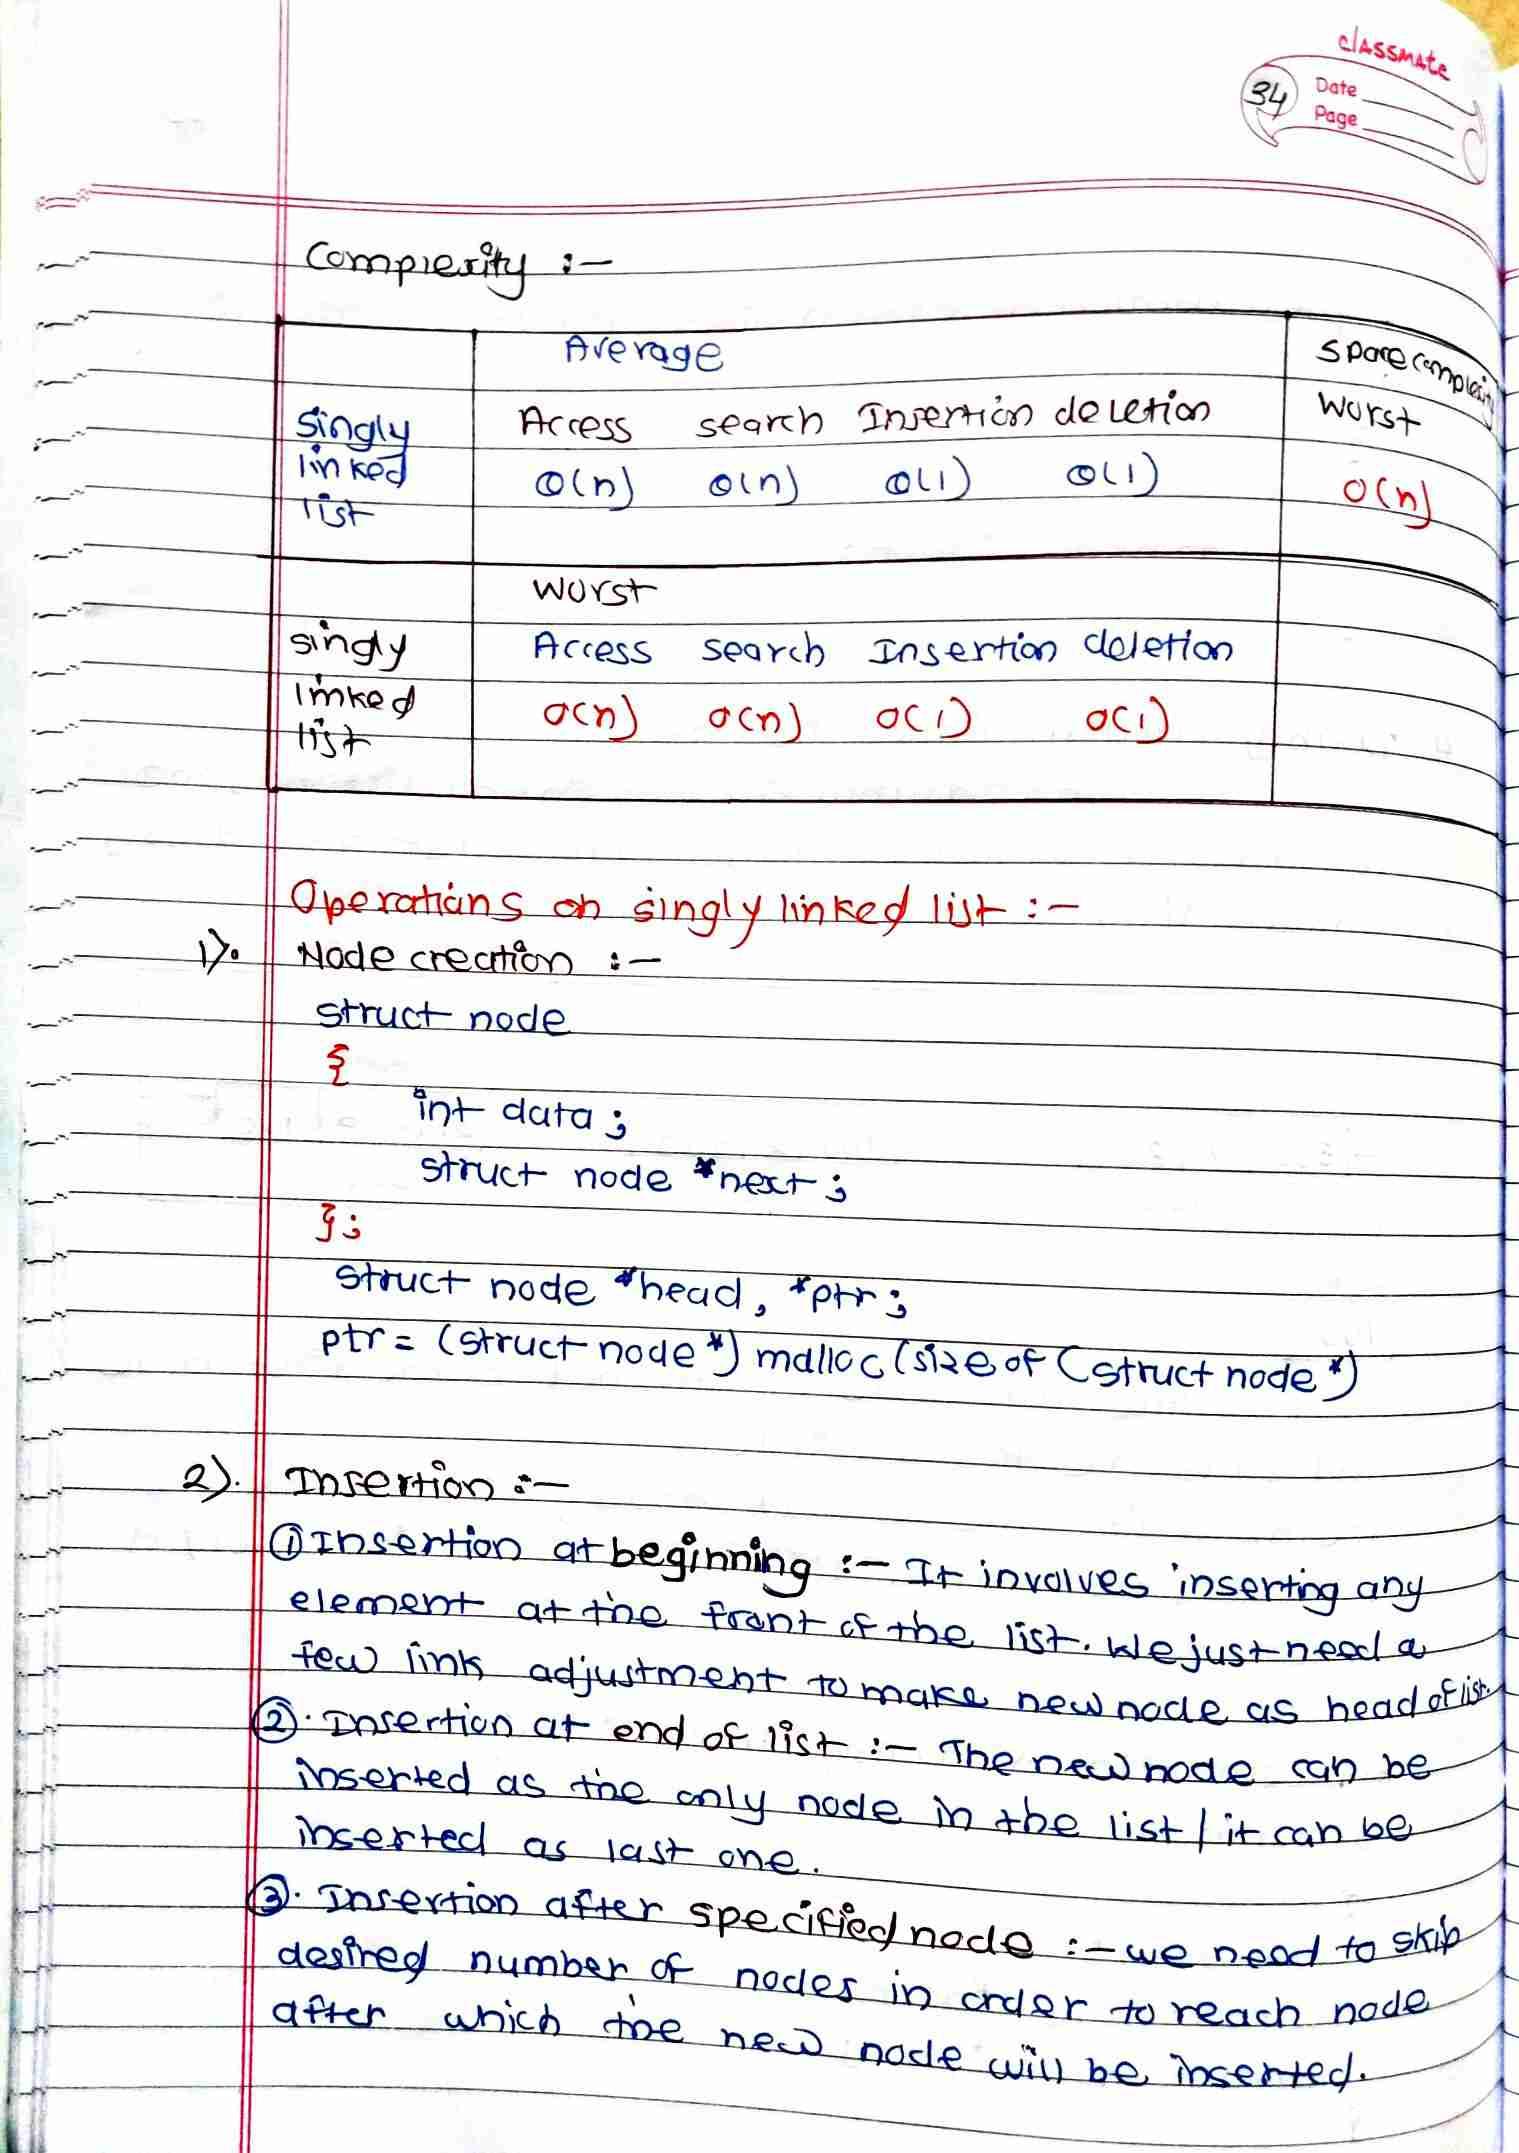 classmate
34
Date
Page
Complexity :-
Average
Space complexity
Singly linked list
Access search Insertion deletion
Worst
Θ(n) Θ(n) Θ(1) Θ(1)
O(n)
Worst
singly linked list
Access search Insertion deletion
O(n) O(n) O(1) O(1)
Operations on singly linked list :-
1). Node creation :-
struct node
{
int data ;
struct node *next ;
};
struct node *head, *ptr ;
ptr = (struct node*) malloc (size of (struct node*)
2). Insertion :-
① Insertion at beginning :- It involves inserting any
element at the front of the list. We just need a
few link adjustment to make new node as head of list.
②. Insertion at end of list :- The new node can be
inserted as the only node in the list / it can be
inserted as last one.
③. Insertion after specified node :- we need to skip
desired number of nodes in order to reach node
after which the new node will be inserted.